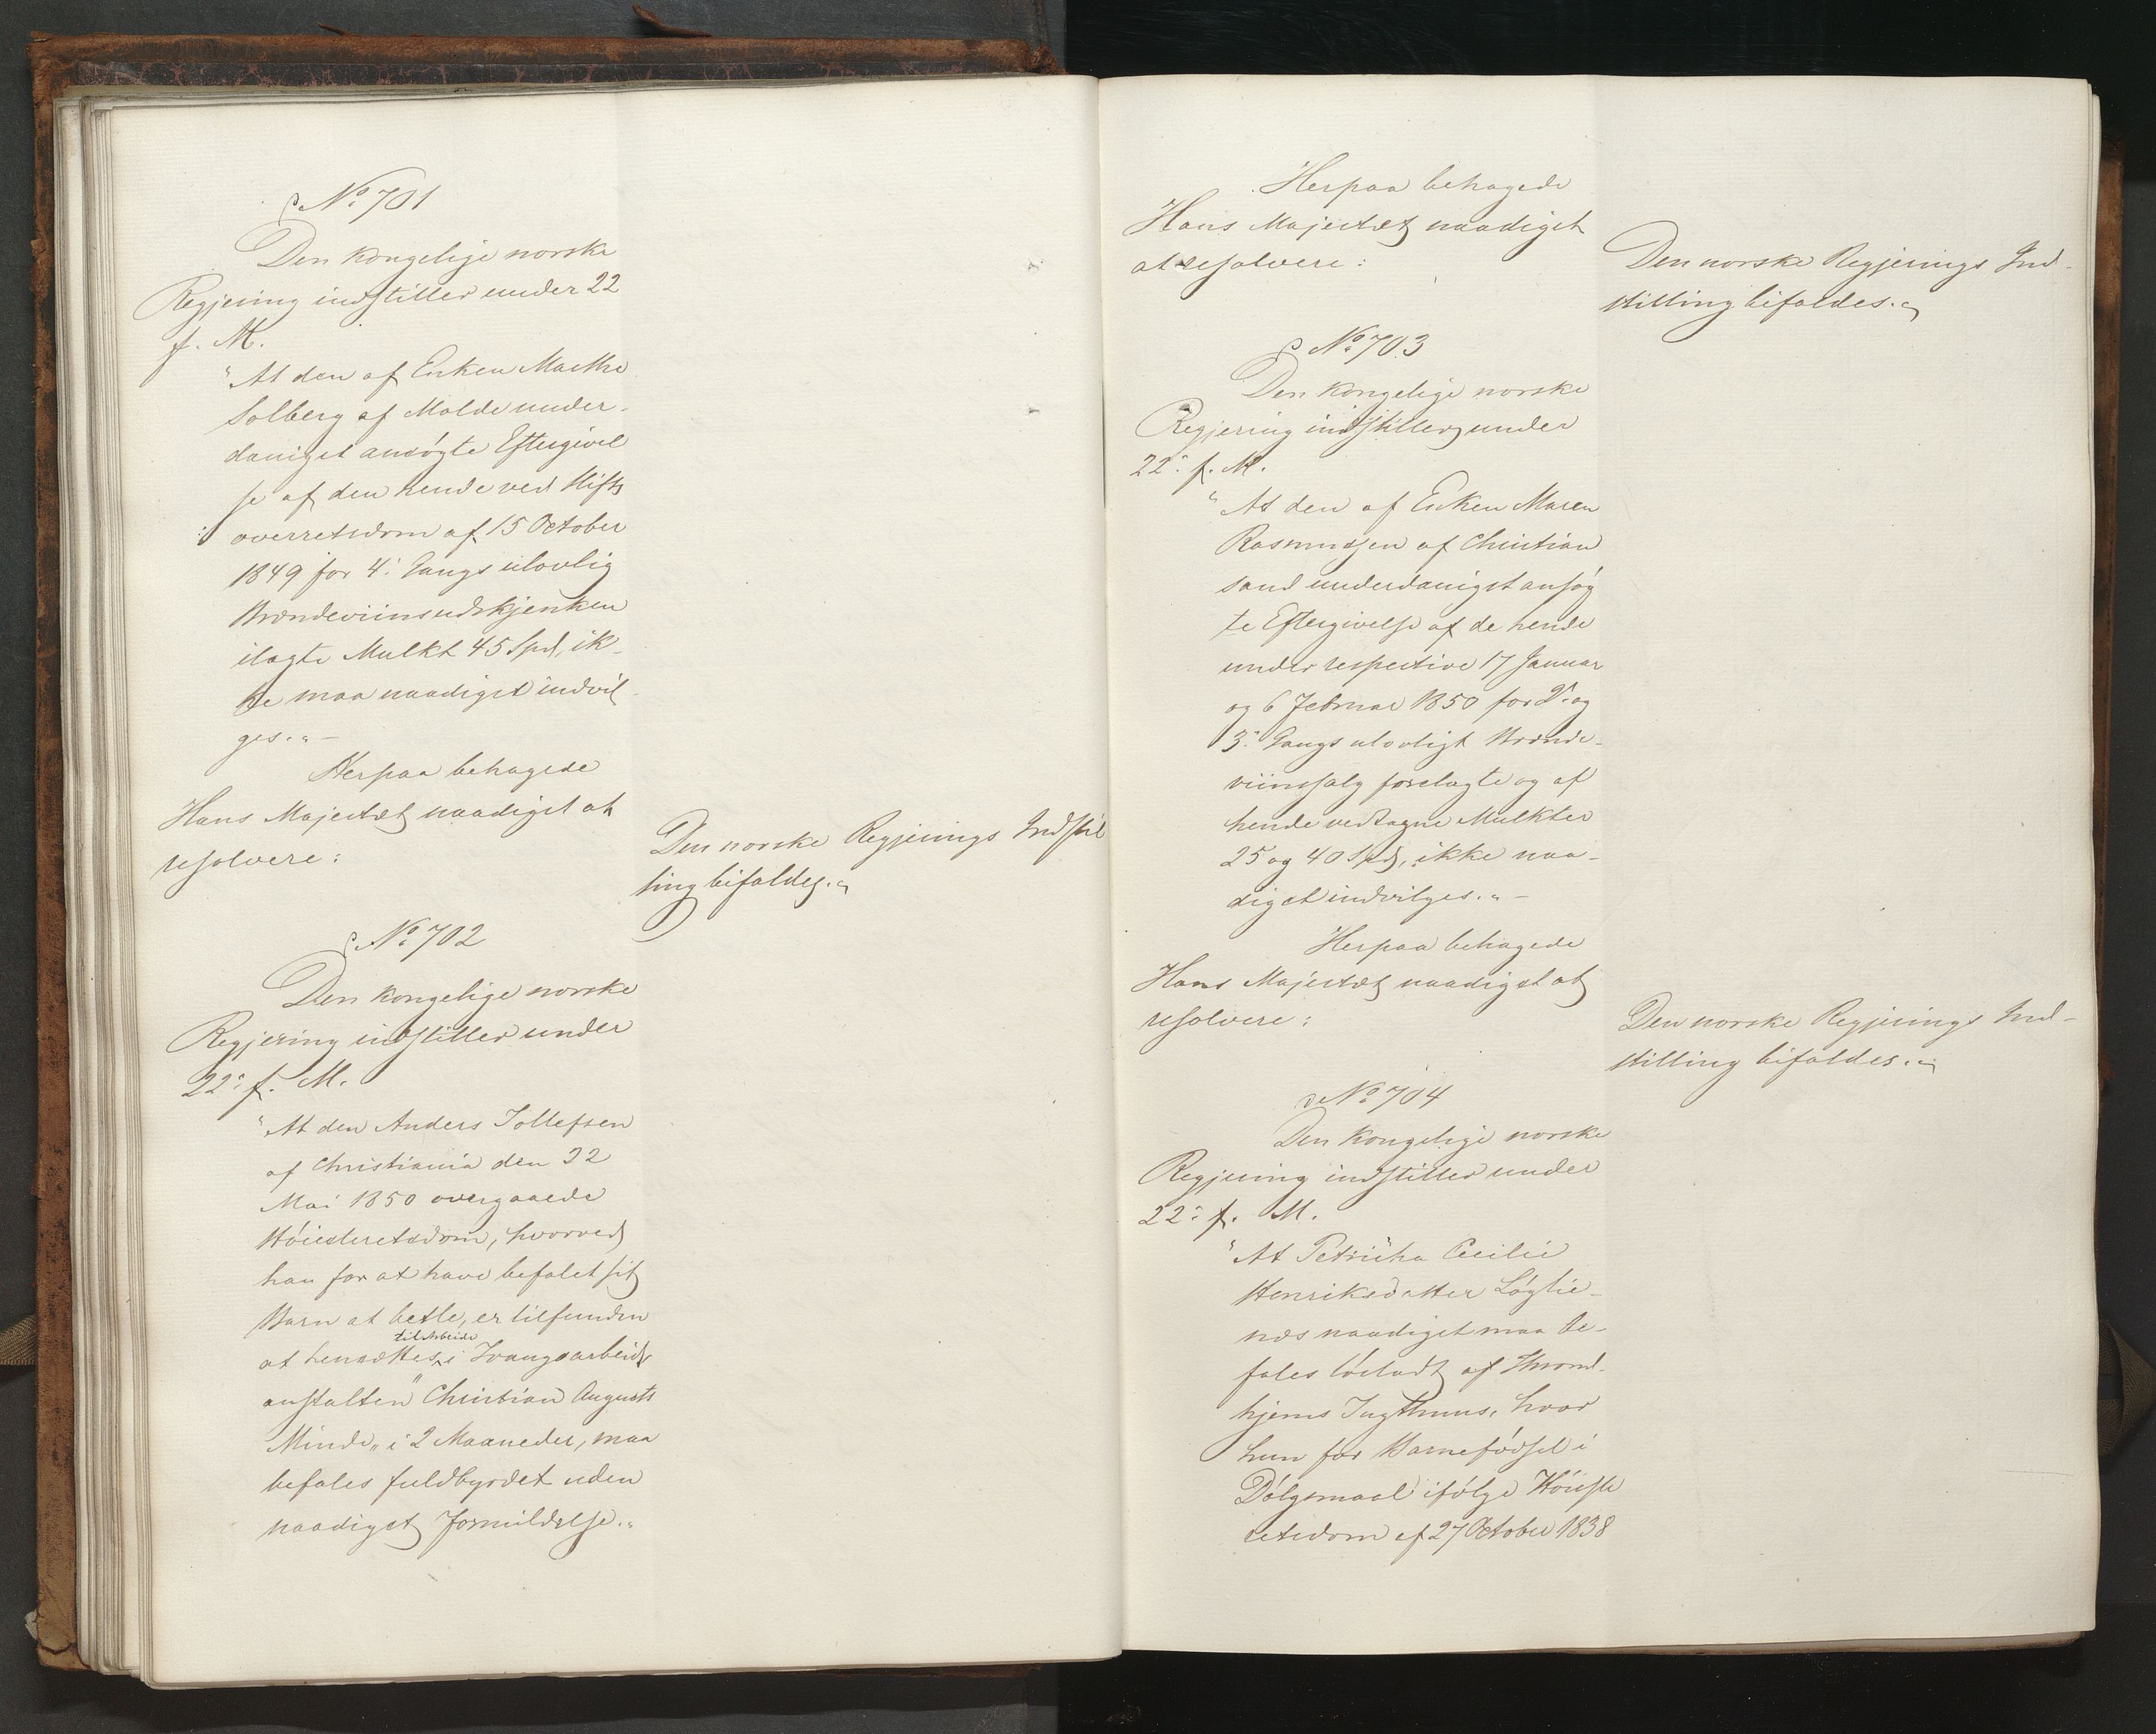 No 701
Den kongelige norske
Regjering indstiller under 22
f. M.
"At den af Enken Marthe
Solberg af Molde under-
danigst ansøgte Eftergivel
se af den hende ved Stifts
overretsdom af 15 October
1849 for 4: Gangs ulovlig
Brændeviinsudskjenken
ilagte Mulkt 45 Spd, ik-
ke maa naadigst indvil-
ges."-
Herpaa behagede
Hans Majestæt naadigst at
resolvere:
Den norske Regjerings Indstil
ling bifaldes."
No 702
Den kongelige norske
Regjering indstiller under
22: f. M.
"At den Anders Tollefsen
af Christiania den 22
Mai 1850 overgaaede
Høiesteretsdom, hvorved
han for at have befalet sit
Barn at betle, er tilfunden
at hensættes til Arbeide i Tvangsarbeids
anstalten "Christian Augusts
Minde" i 2 Maaneder, maa
befales fuldbyrdet uden
naadigst Formildelse."
Herpaa behagede
Hans Majestæt naadigst
at resolvere:
Den norske Regjerings Ind-
stilling bifaldes."
No 703
Den kongelige norske
Regjering indstiller under
22: f. M.
"At den af Enken Maren
Rasmussen af Christian
sand underdanigst ansøg
te Eftergivelse af de hende
under respective 17 Januar
og 6 Februar 1850 for 2: og
3: Gangs ulovligt Brænde-
viinssalg forelagte og af
hende vedtagne Mulkter
25 og 40 Spd, ikke naa-
digst indvilges."-
Herpaa behagede
Hans Majestæt naadigst at
resolvere:
Den norske Regjerings Ind-
stilling bifaldes."
No 704
Den kongelige norske
Regjering indstiller under
22: f. M.
"At Petricka Cecilie
Henriksdatter Løglie-
næs naadigst maa be-
fales løsladt af Thrond-
hjems Tugthuus, hvor
hun for Barnefødsel i
Dølgsmaal ifølge Høieste
retsdom af 27 October 1838